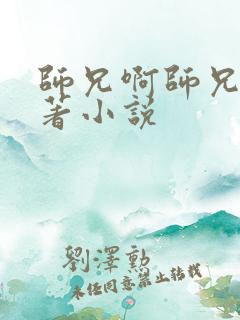 師兄啊師兄
著小説
劉澤勲
未经同意禁止转载